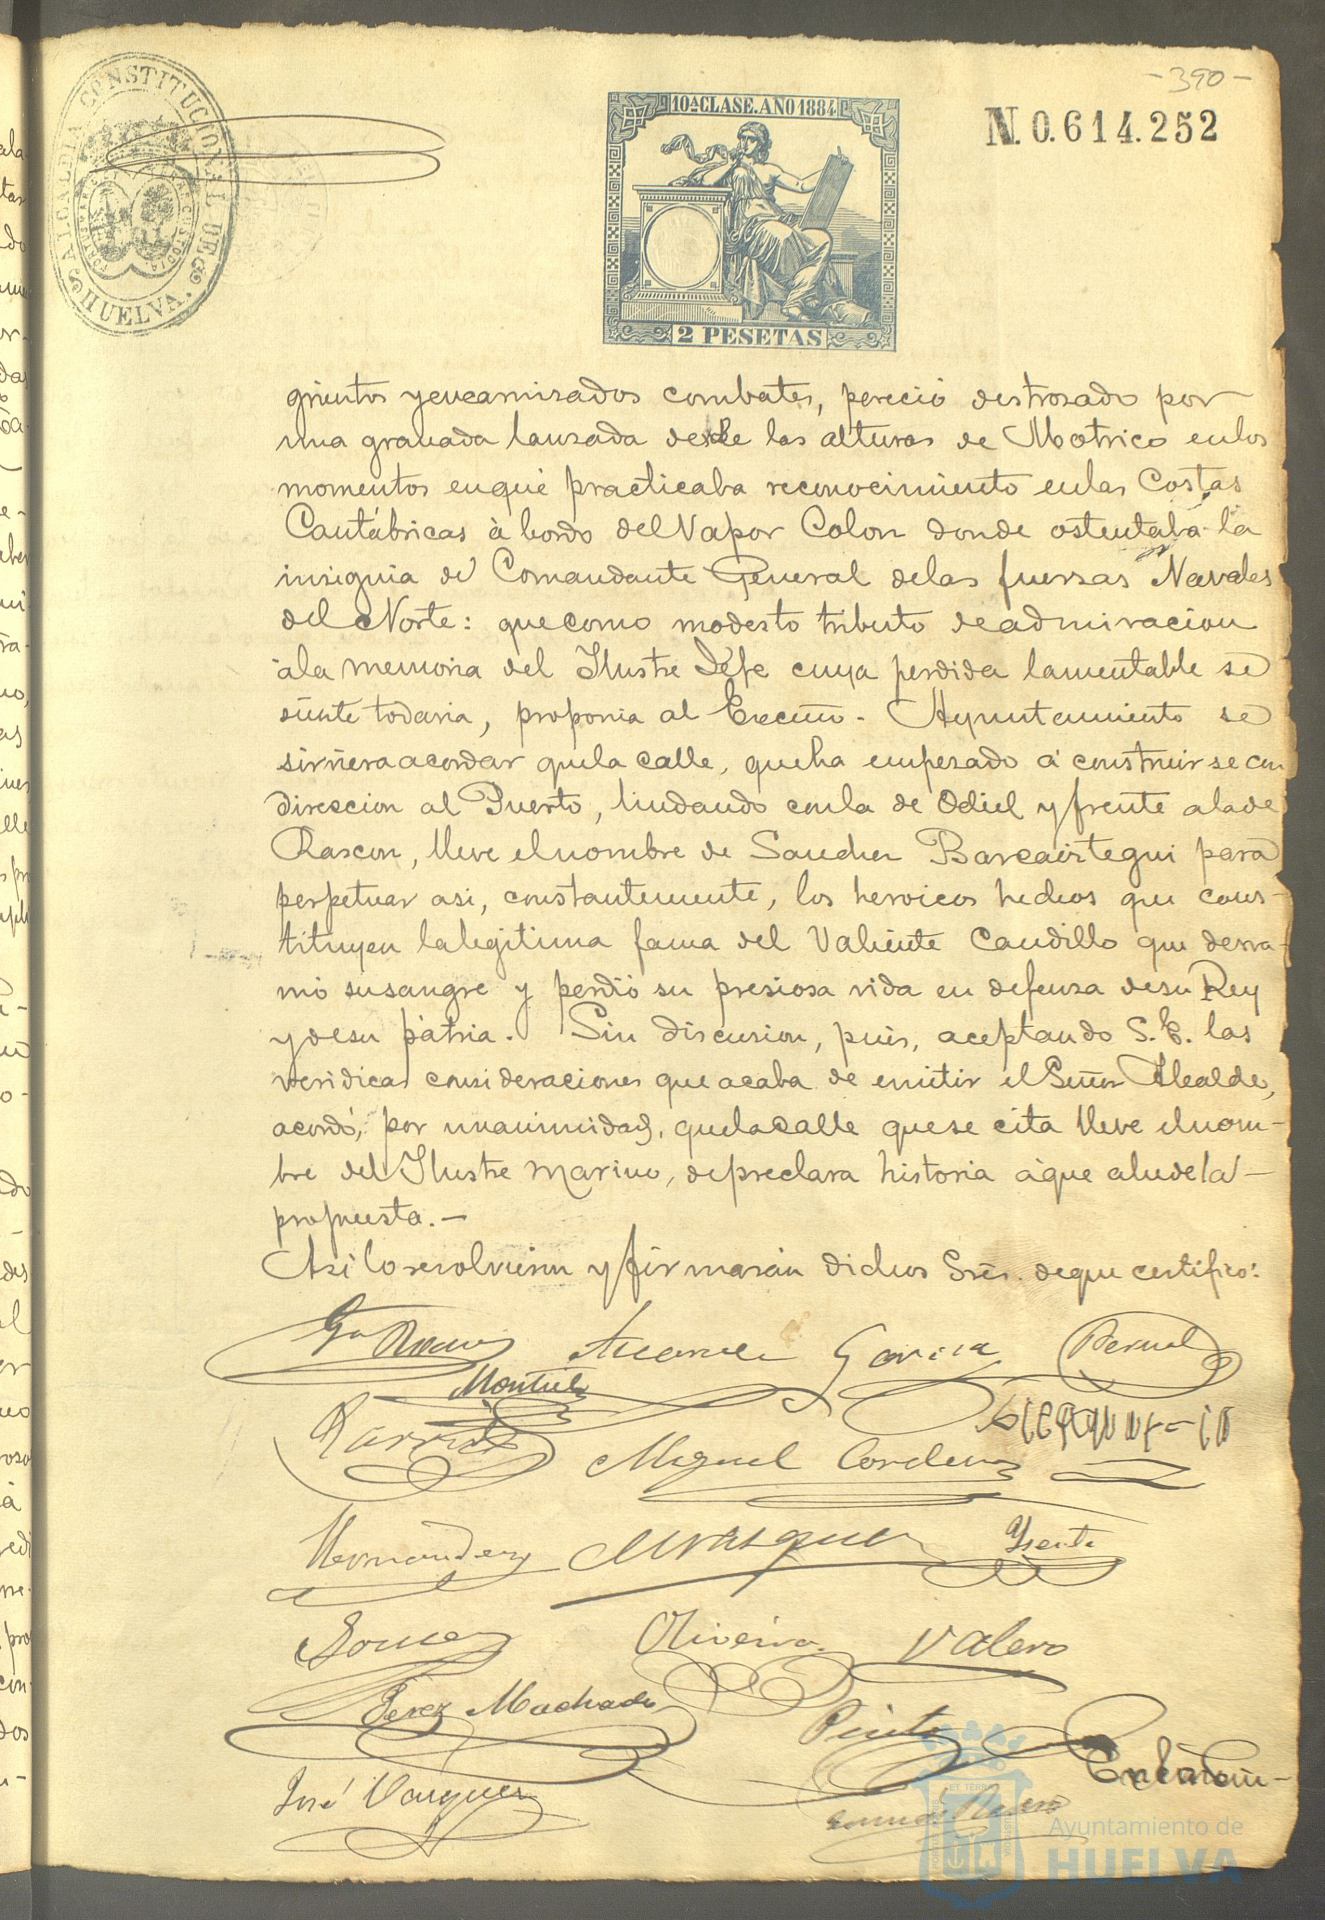 -390-
ALCALDIA CONSTITUCIONAL DE HUELVA.
10ª CLASE. AÑO 1884
N. 0.614.252
2 PESETAS
grientos y encarnisados combates, pereció destrosado por
una granada lansada desde las alturas de Motrico en los
momentos en que practicaba reconocimiento en las Costas
Cantábricas à bordo del Vapor Colon donde ostentaba la
insignia de Comandante General de las fuersas Navales
del Norte: que como modesto tributo de admiracion
à la memoria del Ilustre Jefe cuya perdida lamentable se
siente todavia, proponia al Excmo. Ayuntamiento se
sirviera acordar que la calle, que ha empesado á construirse con
direccion al Puerto, lindando con la de Odiel y frente a la de
Rascon, lleve el nombre de Sanchez Barcaistegui para
perpetuar asi, constantemente, los heroicos hechos que cons-
tituyen la legitima fama del Valiente Caudillo que derra-
mó su sangre y perdió su presiosa vida en defensa de su Rey
y de su pátria. Sin discusion, pues, aceptando S. E. las
veridicas consideraciones que acaba de emitir el Señor Alcalde,
acordó, por unanimidad, que la calle que se cita lleve el nom-
bre del Ilustre marino, de preclara historia à que alude la
propuesta.-
Asi lo resolvieron y firmarán dichos Sres. de que certifico:
Garcia Bernal
Montiel
Miguel Cordero
Hernandez
Gomez Oliveira Valero
Perez Machado
Pinto
José Vazquez
Ayuntamiento de
HUELVA